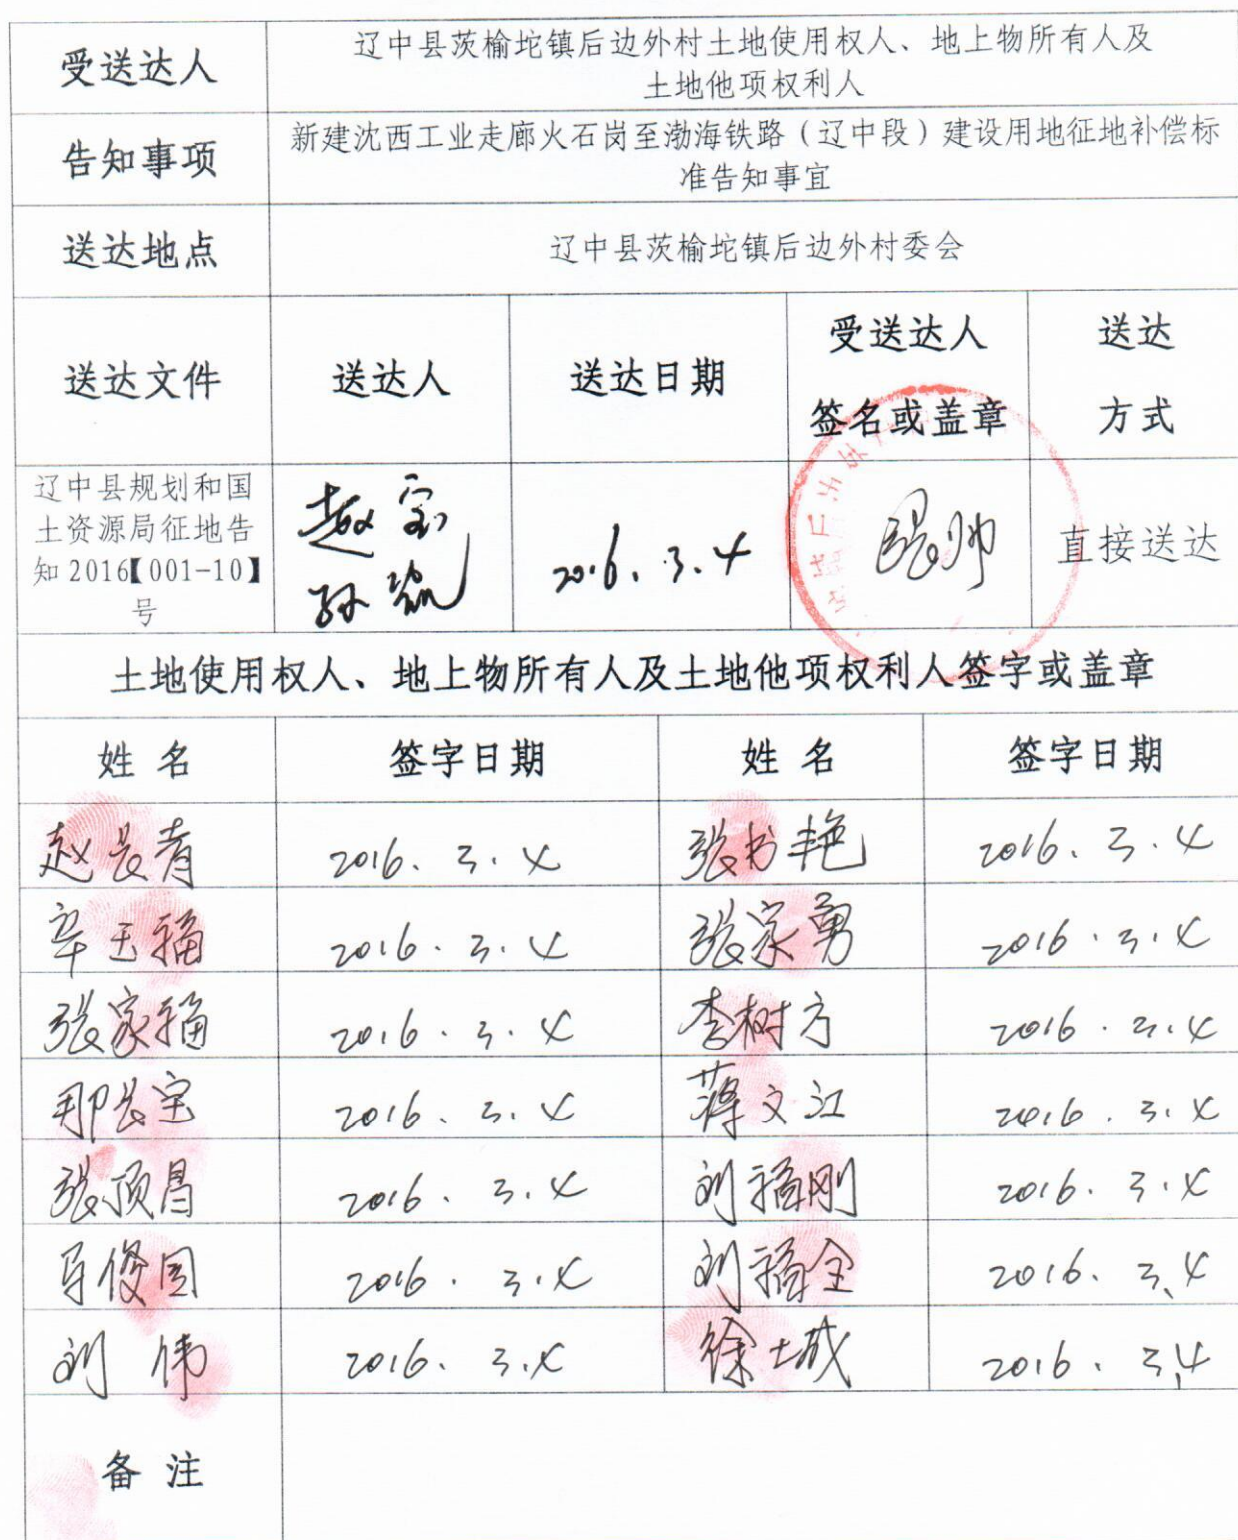 受送达人
辽中县茨榆坨镇后边外村土地使用权人、地上物所有人及
土地他项权利人
告知事项
新建沈西工业走廊火石岗至渤海铁路（辽中段）建设用地征地补偿标
准告知事宜
送达地点
辽中县茨榆坨镇后边外村委会
送达文件
送达人
送达日期
受送达人
签名或盖章
送达
方式
辽中县规划和国
土资源局征地告
知2016【001-10】
号
赵宝
2016.3.4
直接送达
土地使用权人、地上物所有人及土地他项权利人签字或盖章
姓 名
签字日期
姓 名
签字日期
赵长青
2016.3.4
张书艳
2016.3.4
辛玉福
2016.3.4
张家勇
2016.3.4
张家福
2016.3.4
李树方
2016.3.4
那长宝
2016.3.4
蒋文江
2016.3.4
张顶昌
2016.3.4
刘福刚
2016.3.4
2016.3.4
刘福全
2016.3.4
刘伟
2016.3.4
徐士成
2016.3.4
备 注